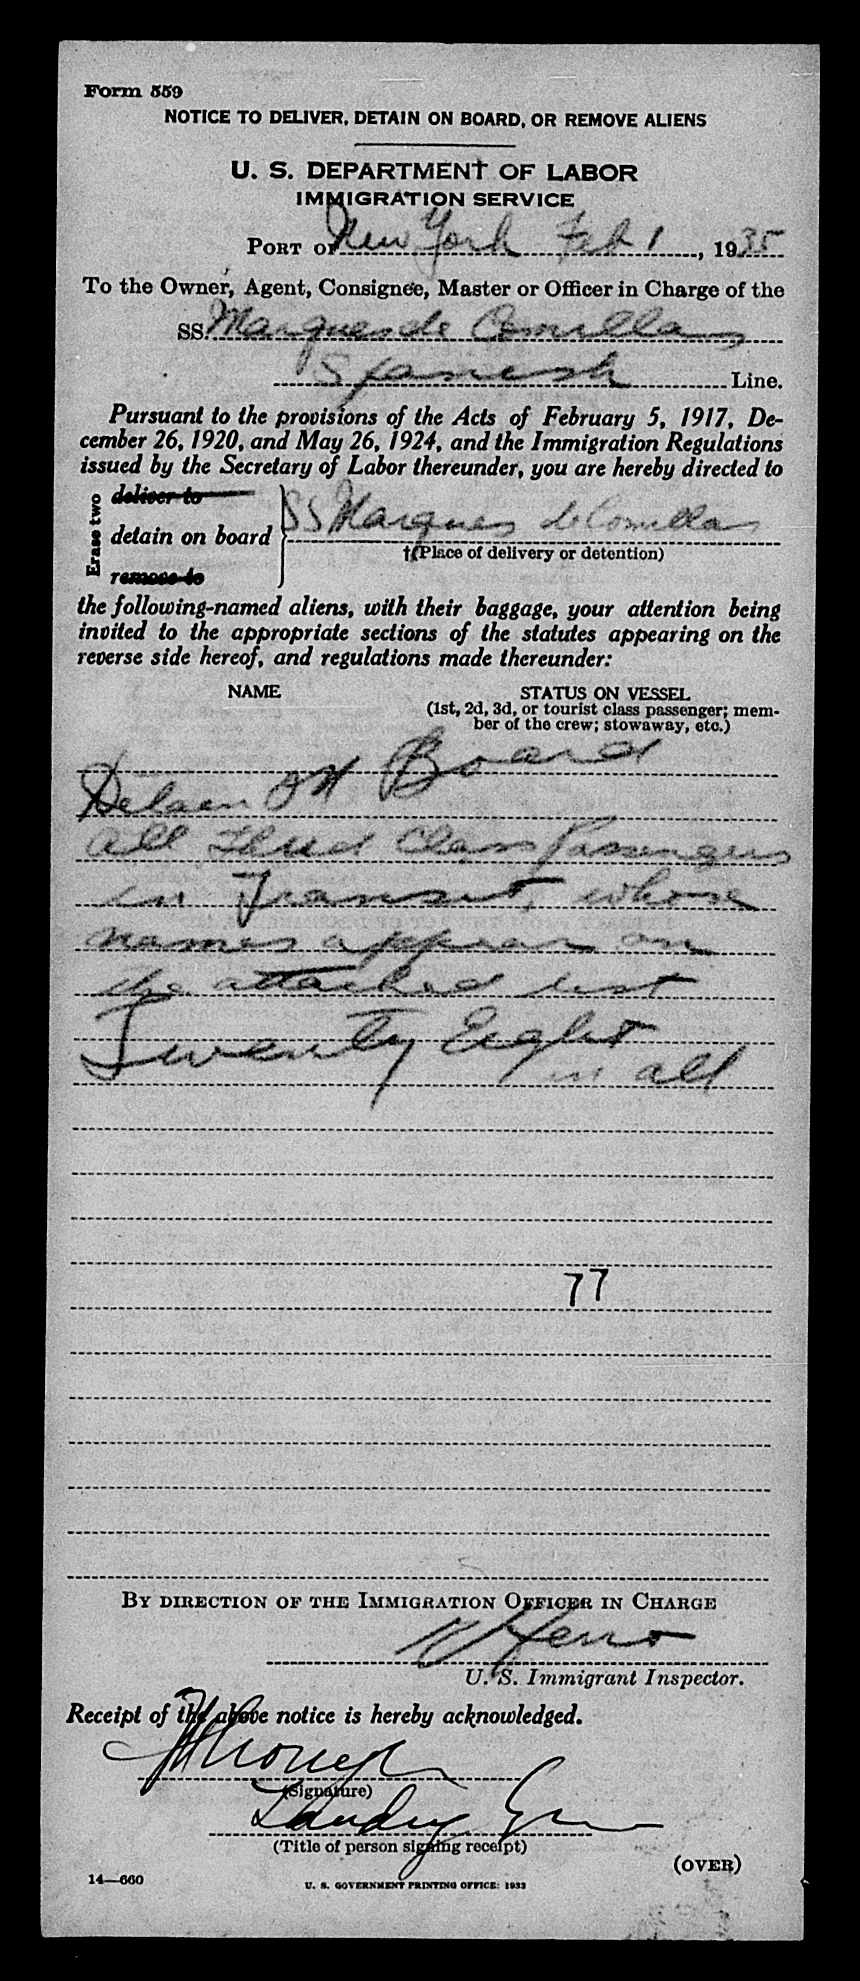 Form 559
NOTICE TO DELIVER, DETAIN ON BOARD, OR REMOVE ALIENS
U. S. DEPARTMENT OF LABOR
IMMIGRATION SERVICE
PORT OF New York Feb 1, 1935
To the Owner, Agent, Consignee, Master or Officer in Charge of the
SS. Marques de Comillas
Spanish Line.
Pursuant to the provisions of the Acts of February 5, 1917, De-
cember 26, 1920, and May 26, 1924, and the Immigration Regulations
issued by the Secretary of Labor thereunder, you are hereby directed to
Erase two
deliver to
detain on board
remove to
SS Marques de Comillas
†(Place of delivery or detention)
the following-named aliens, with their baggage, your attention being
invited to the appropriate sections of the statutes appearing on the
reverse side hereof, and regulations made thereunder:
NAME
STATUS ON VESSEL
(1st, 2d, 3d, or tourist class passenger; mem-
ber of the crew; stowaway, etc.)
Detain on Board
all Third Class Passengers
in Transit, whose
names appear on
the attached list
Twenty Eight
in all
77
BY DIRECTION OF THE IMMIGRATION OFFICER IN CHARGE
U. S. Immigrant Inspector.
Receipt of the above notice is hereby acknowledged.
(Signature)
(Title of person signing receipt)
(OVER)
14—660
U. S. GOVERNMENT PRINTING OFFICE: 1933